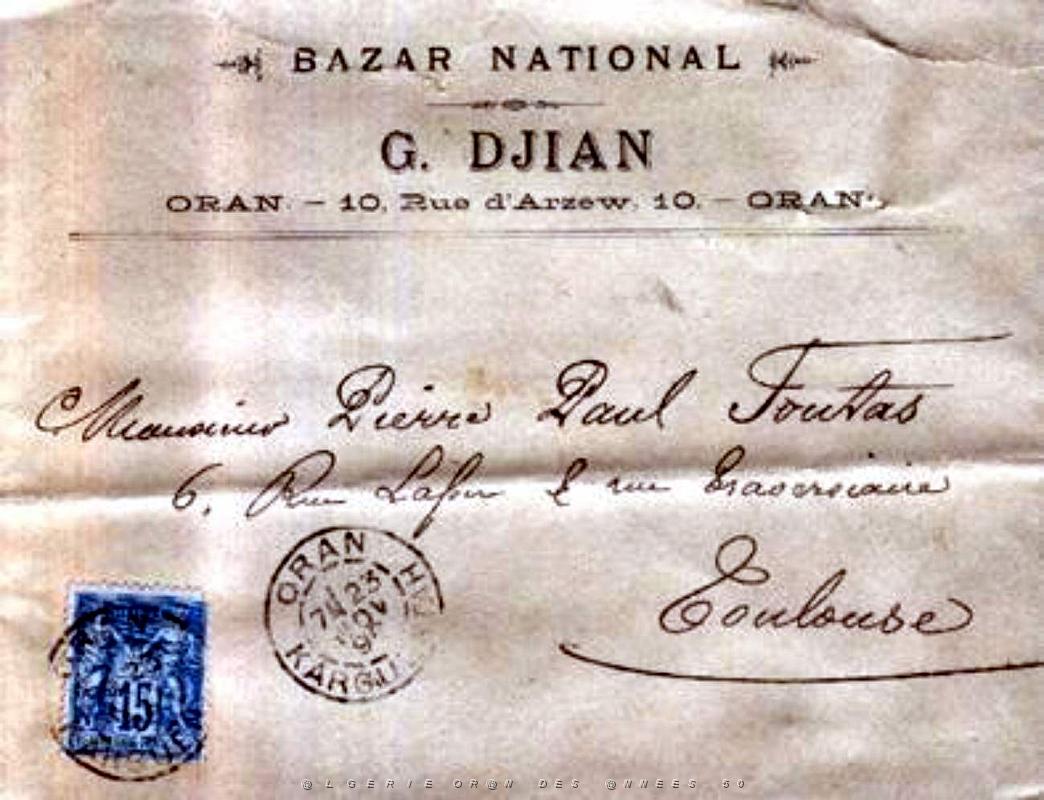 BAZAR NATIONAL
G. DJIAN
ORAN. – 10, Rue d'Arzew, 10. – ORAN.
Monsieur Pierre Paul Foutas
6, Rue & rue Traversière
Toulouse
ORAN
23
KARGU
15
@LGERIE OR@N DES @NNEES 50